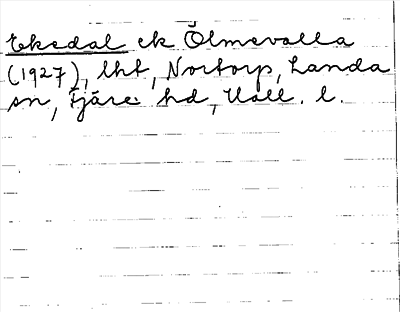 Ekedal ck Ölmevalla
(1927), lht, Nortorp, Landa
sn, Fjäre hd, Hall. l.